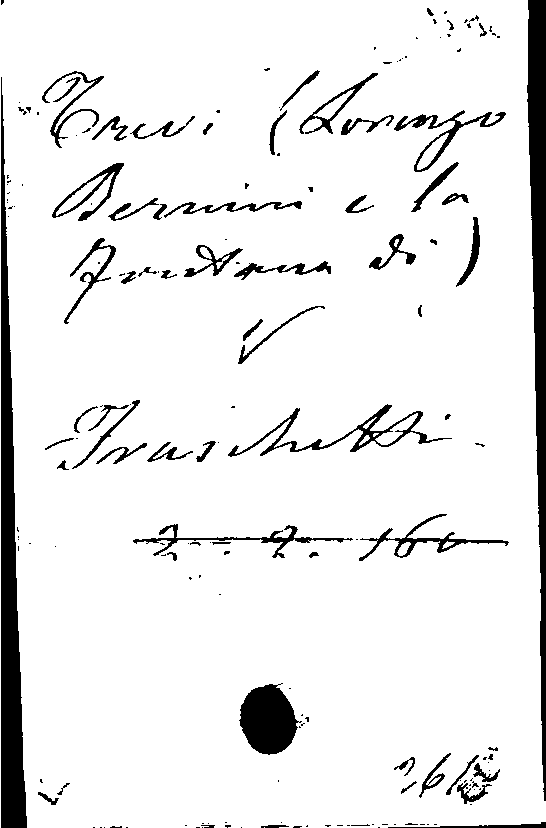 Trevi (Lorenzo
Bernini e la
Fontana di)
V
Fraschetti
2 - 2. 160